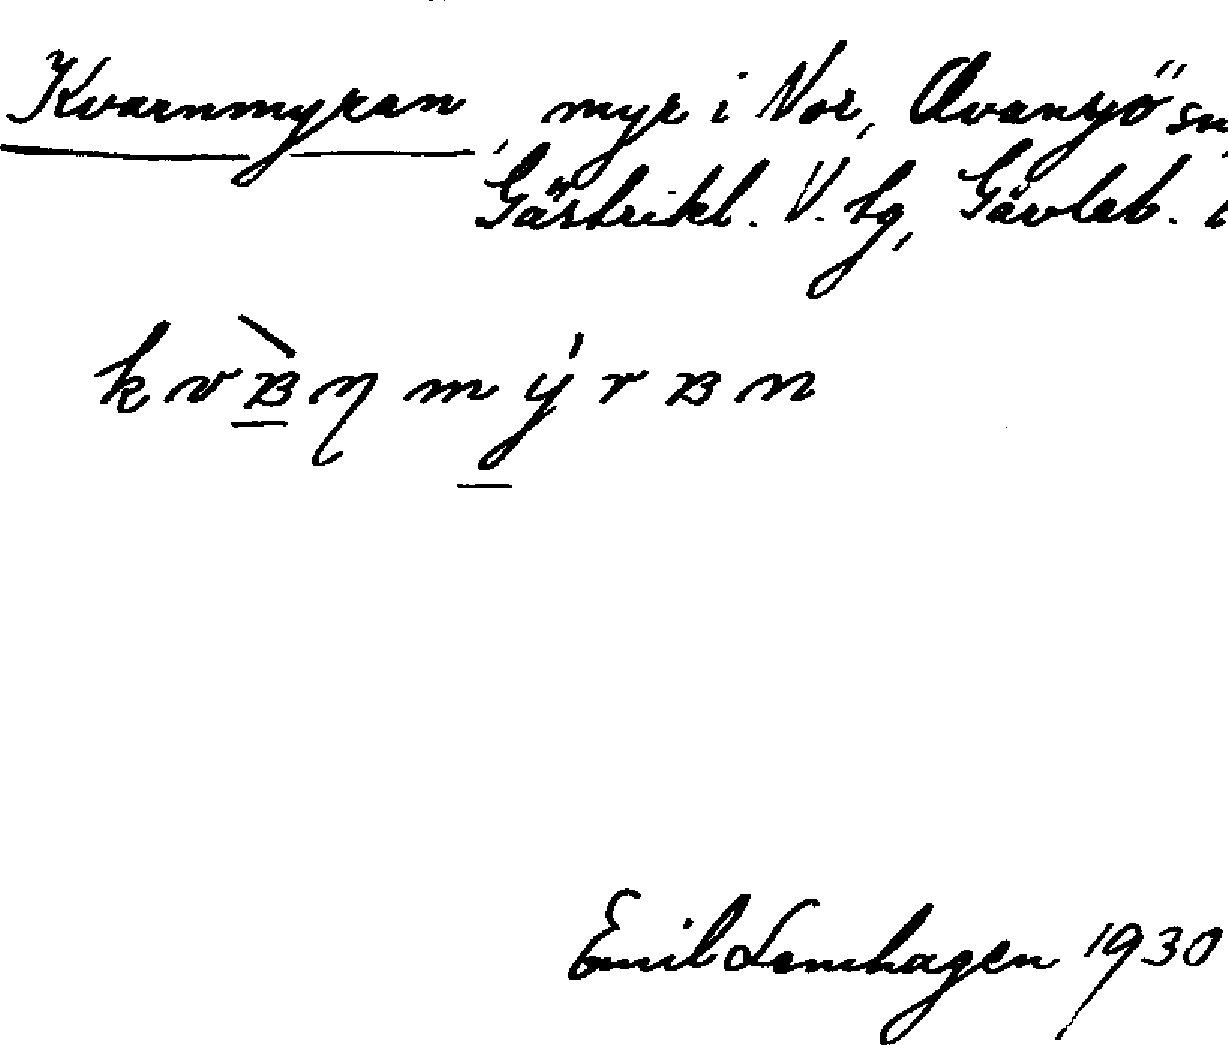 Kvarnmyran, myr i Nor, Ovansjö sn,
Gästrikl. V. tg, Gävleb.
kvʙ̀ηmýrʙn
Emil Lemhagen 1930